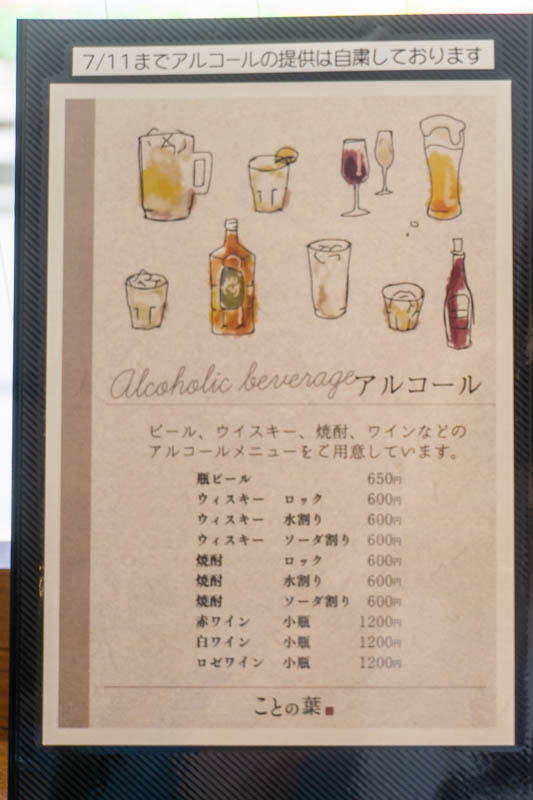 7/11までアルコールの提供は自粛しております
Alcoholic beverage アルコール
ビール、ウイスキー、焼酎、ワインなどの
アルコールメニューをご用意しています。
瓶ビール 650円
ウィスキー ロック 600円
ウィスキー 水割り 600円
ウィスキー ソーダ割り 600円
焼酎 ロック 600円
焼酎 水割り 600円
焼酎 ソーダ割り 600円
赤ワイン 小瓶 1200円
白ワイン 小瓶 1200円
ロゼワイン 小瓶 1200円
ことの葉